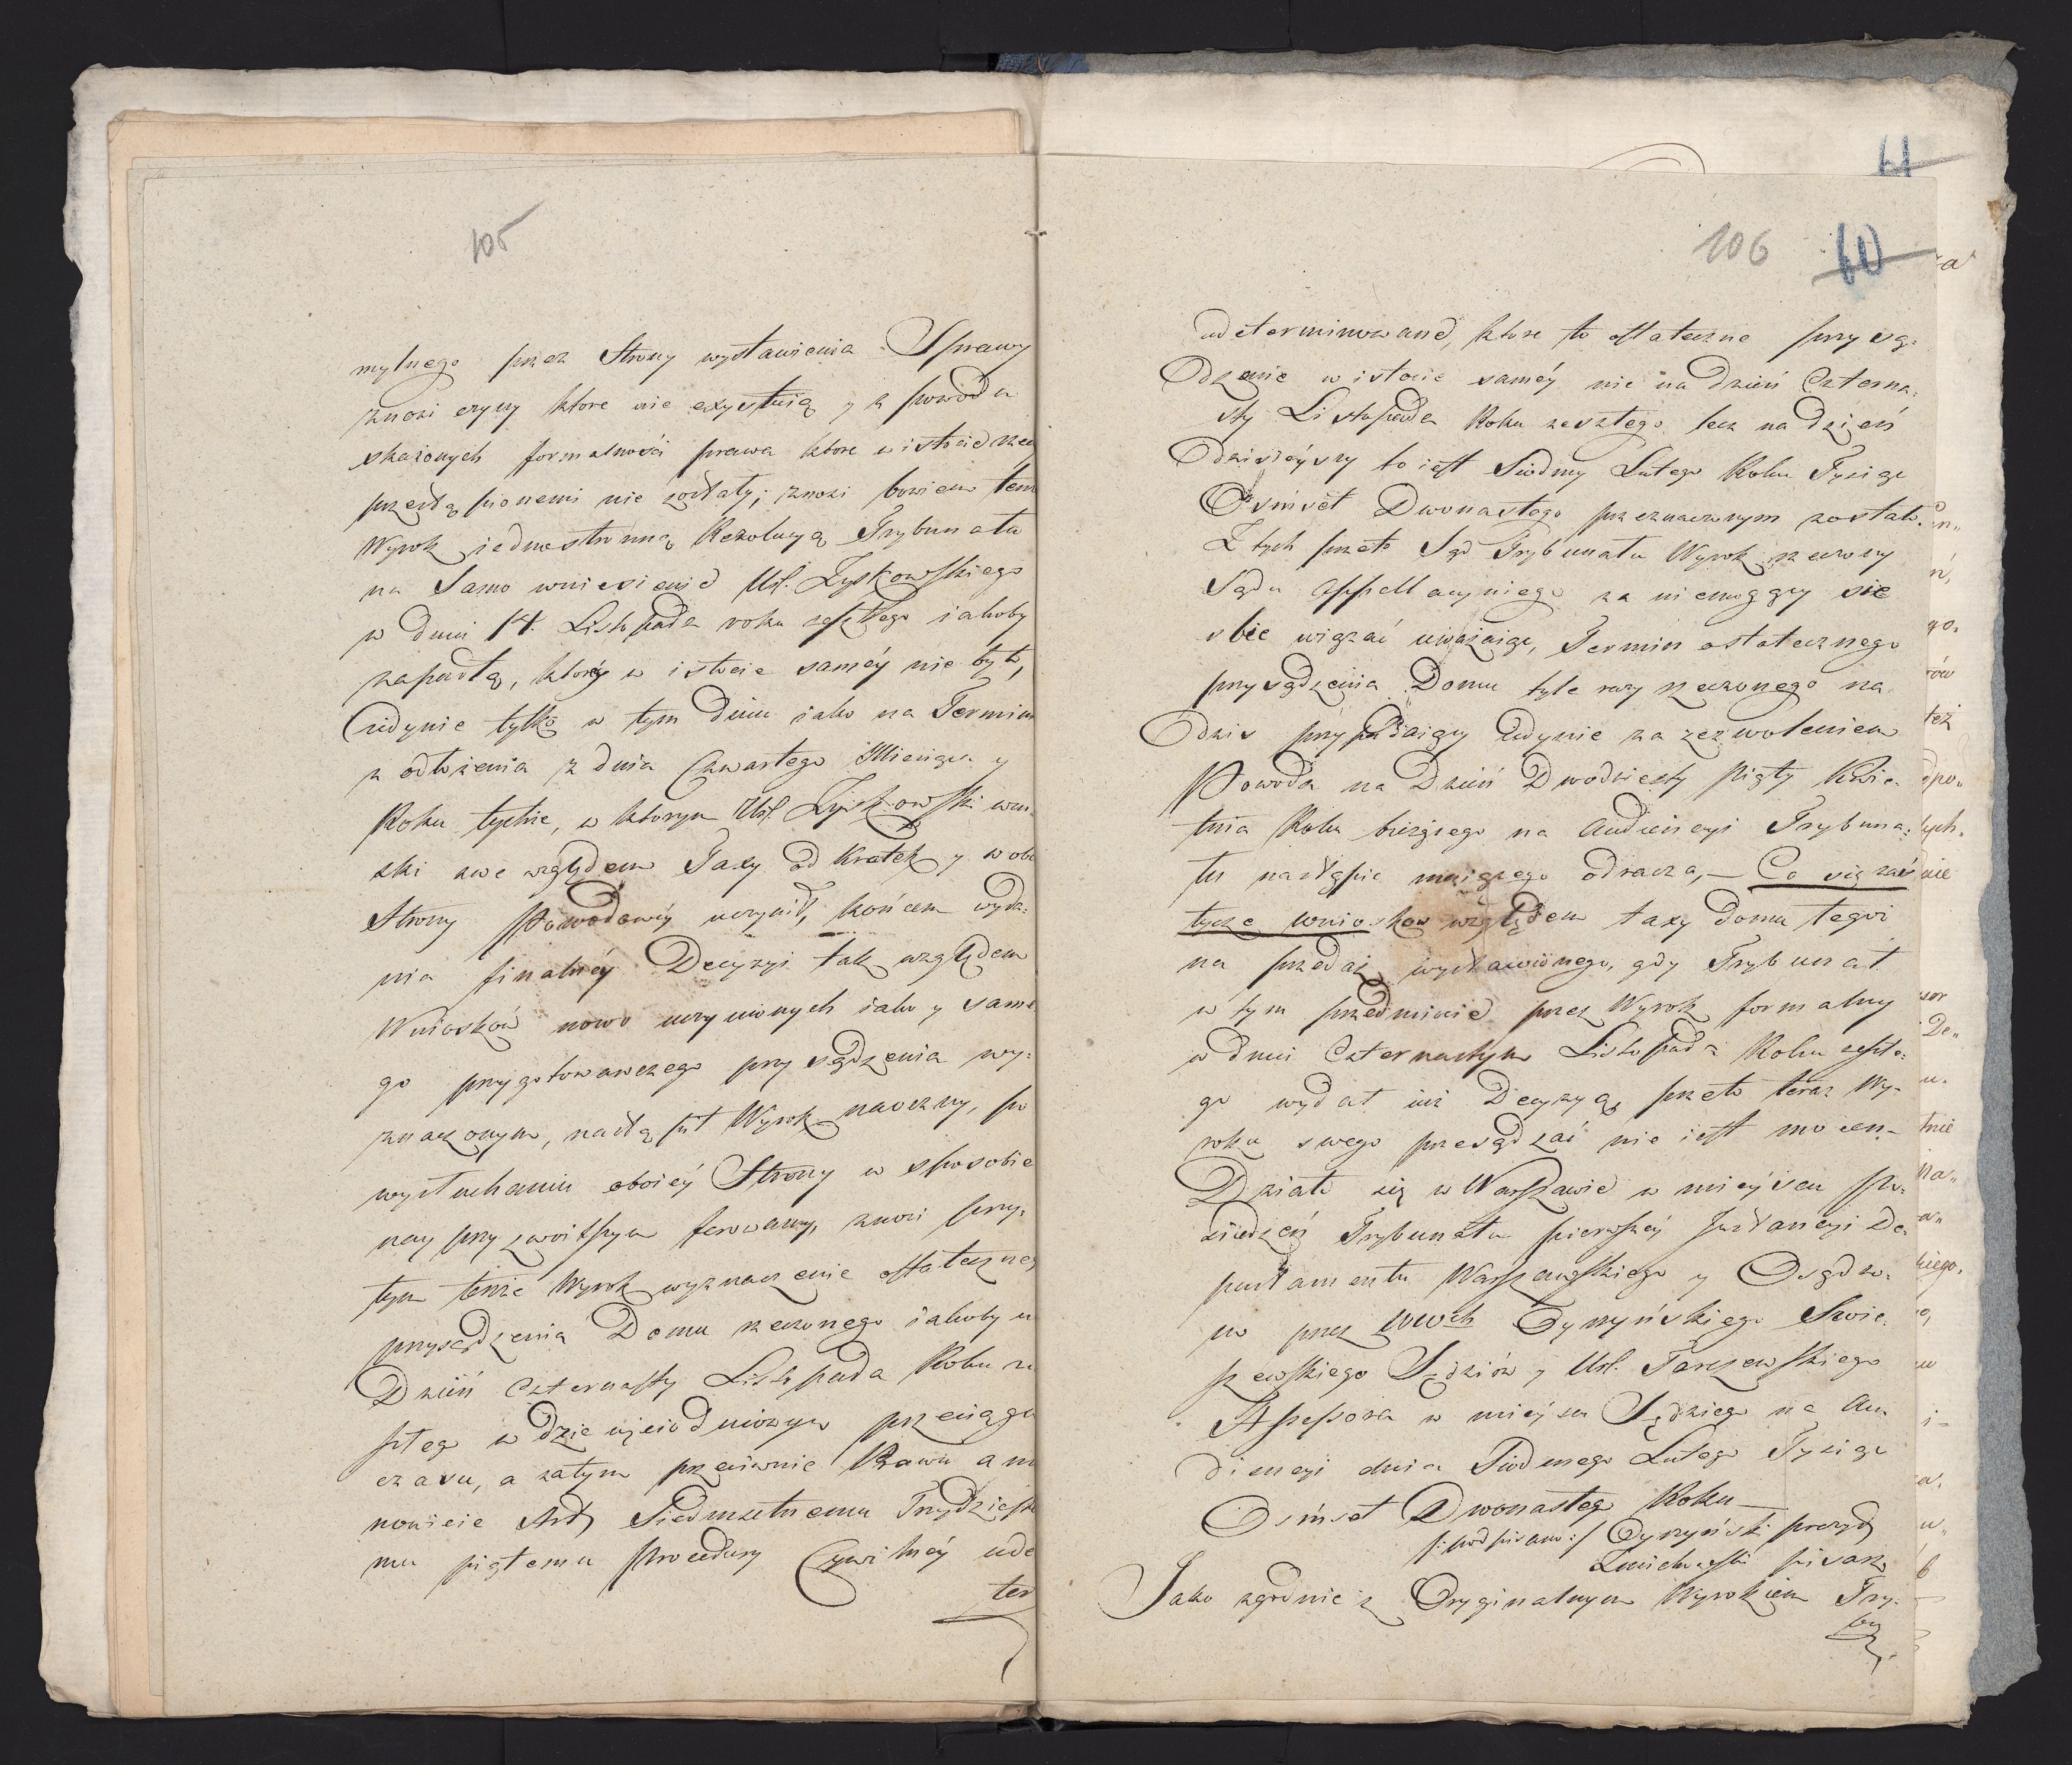 105
mylnego przez Strony wystawienia Sprawy
znosi czyny ktore nie exystuią y z powodu
skażonych formalności prawa ktore w istocie
przestąpionemi nie zostały; znosi bowiem tem
Wyrok iednostronną Rezolucyą Trybunału
na Samo wniesienie Ur. Zyskowskiego
w dniu 14. Listopada roku zeszłego iakoby
zapadłą, ktorey w istocie saméy nie było,
iedynie tylko w tym dniu iako na Termin
z odłożenia z dnia Czwartego Miesiąca y
Roku tychże, w ktorym Ur. Zyskowski wnio
ski swe względem Taxy od Kratek y w obe
Strony Powodowéy uczynił, końcem wyda
nia finalnéy Decyzyi tak względem
Wniosków nowo uczynionych iako y same
go przygotowawczego przysądzenia wy=
znaczonym, nastąpił Wyrok naoczny, po
wysłuchaniu oboiéy Strony w sposobie
nay przyzwoitszym ferowany, znosi przy=
tym tenże Wyrok wyznaczenie ostatecznego
przysądzenia Domu rzeczonego iakoby na
Dzień Czternasty Listopada Roku ze
szłego w dziewięciodniowym przeciągu
czasu, a zatym przeciwnie Prawu a mia
nowicie Art. Siedmsetnemu Trzydziesto
mu piątemu Procedury Cywilnéy ude
ter
61
106 60
udeterminowane, ktore to ostateczne przysą=
dzenie w istocie saméy nie na dzień Czterna=
sty Listopada Roku zeszłego lecz na dzień
dzisieyszy to iest Siodmy Lutego Roku Tysiąc
Osmset Dwunastego przeznaczonym zostało.
Z tych przeto Sąd Trybunału Wyrok rzeczony
Sądu Appellacyinego za niemogący sie
obie wiązać uważaiąc, Termin ostatecznego
przysądzenia Domu tyle razy rzeczonego na
dziś przypadaiący iedynie za zezwoleniem
Powoda na Dzień Dwudziesty piąty Kwie=
tnia Roku bieżącego na Audiencyi Trybuna=
łu nastąpić maiącego odracza, — Co się zaś
tycze wniosków względem taxy domu tegoż
na przedaż wystawionego, gdy Trybunał
w tym przedmiocie przez Wyrok formalny
w dniu Czternastym Listopada Roku zeszłe=
go wydał iuż Decyzyą, przeto teraz Wy=
roku swego przesądzać nie iest mocen —
Działo się w Warszawie w mieyscu po=
siedzeń Trybunału pierwszéy Instancyi De=
partamentu Warszawskiego y Osądzo=
no przez WWch Cyrzyńskiego Swie=
szewskiego Sędziów y Ur. Tarczewskiego
Assessora w mieyscu Sędziego na Au
diencyi dnia Siodmego Lutego Tysiąc
Osmset Dwunastego Roku —
/: podpisano :/ Cyrzyński prezyd
pisarz
Jako zgodnie z Oryginalnym Wyrokiem Try=
bu